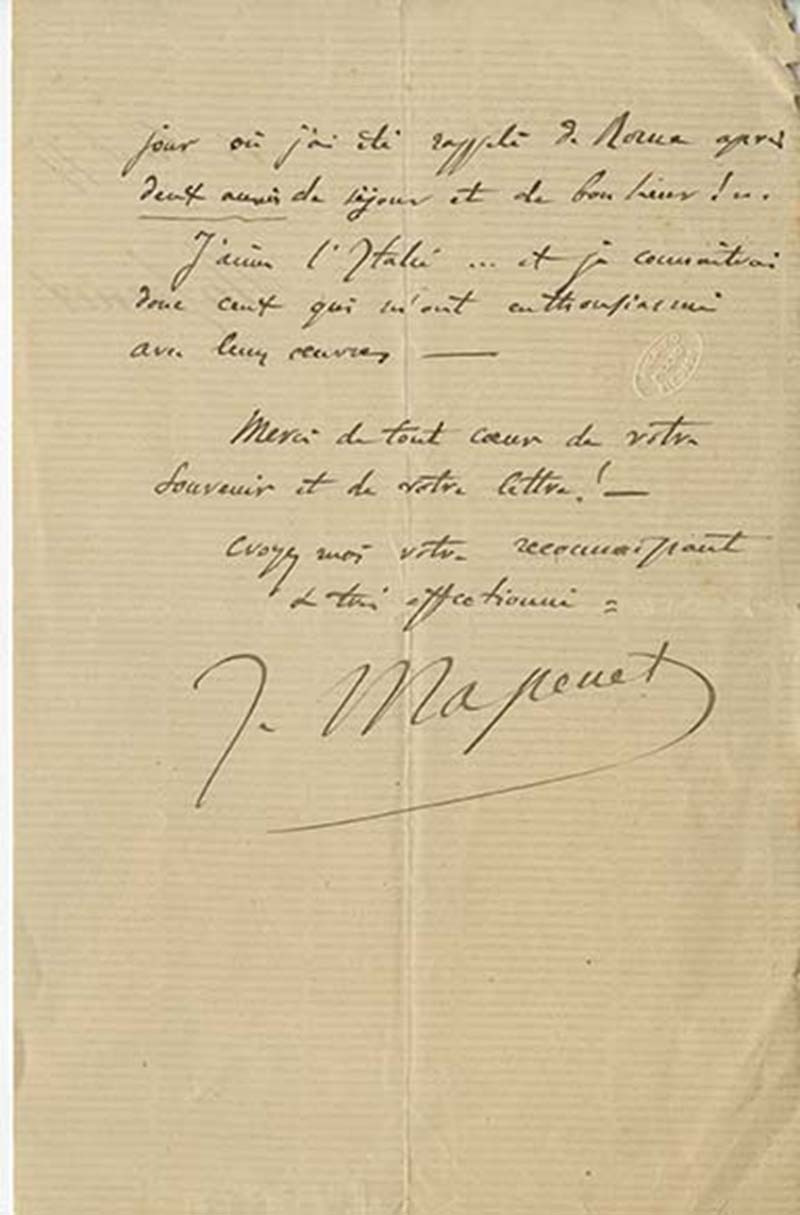 jour où j'ai été rappelé de Rome après
deux années de séjour et de bonheur !..
J'aime l'Italie ... et je connaîtrai
donc ceux qui m'ont enthousiasmé
avec leurs œuvres —
Merci de tout cœur de votre
souvenir et de votre lettre ! —
Croyez moi votre reconnaissant
& très affectionné =
J. Massenet